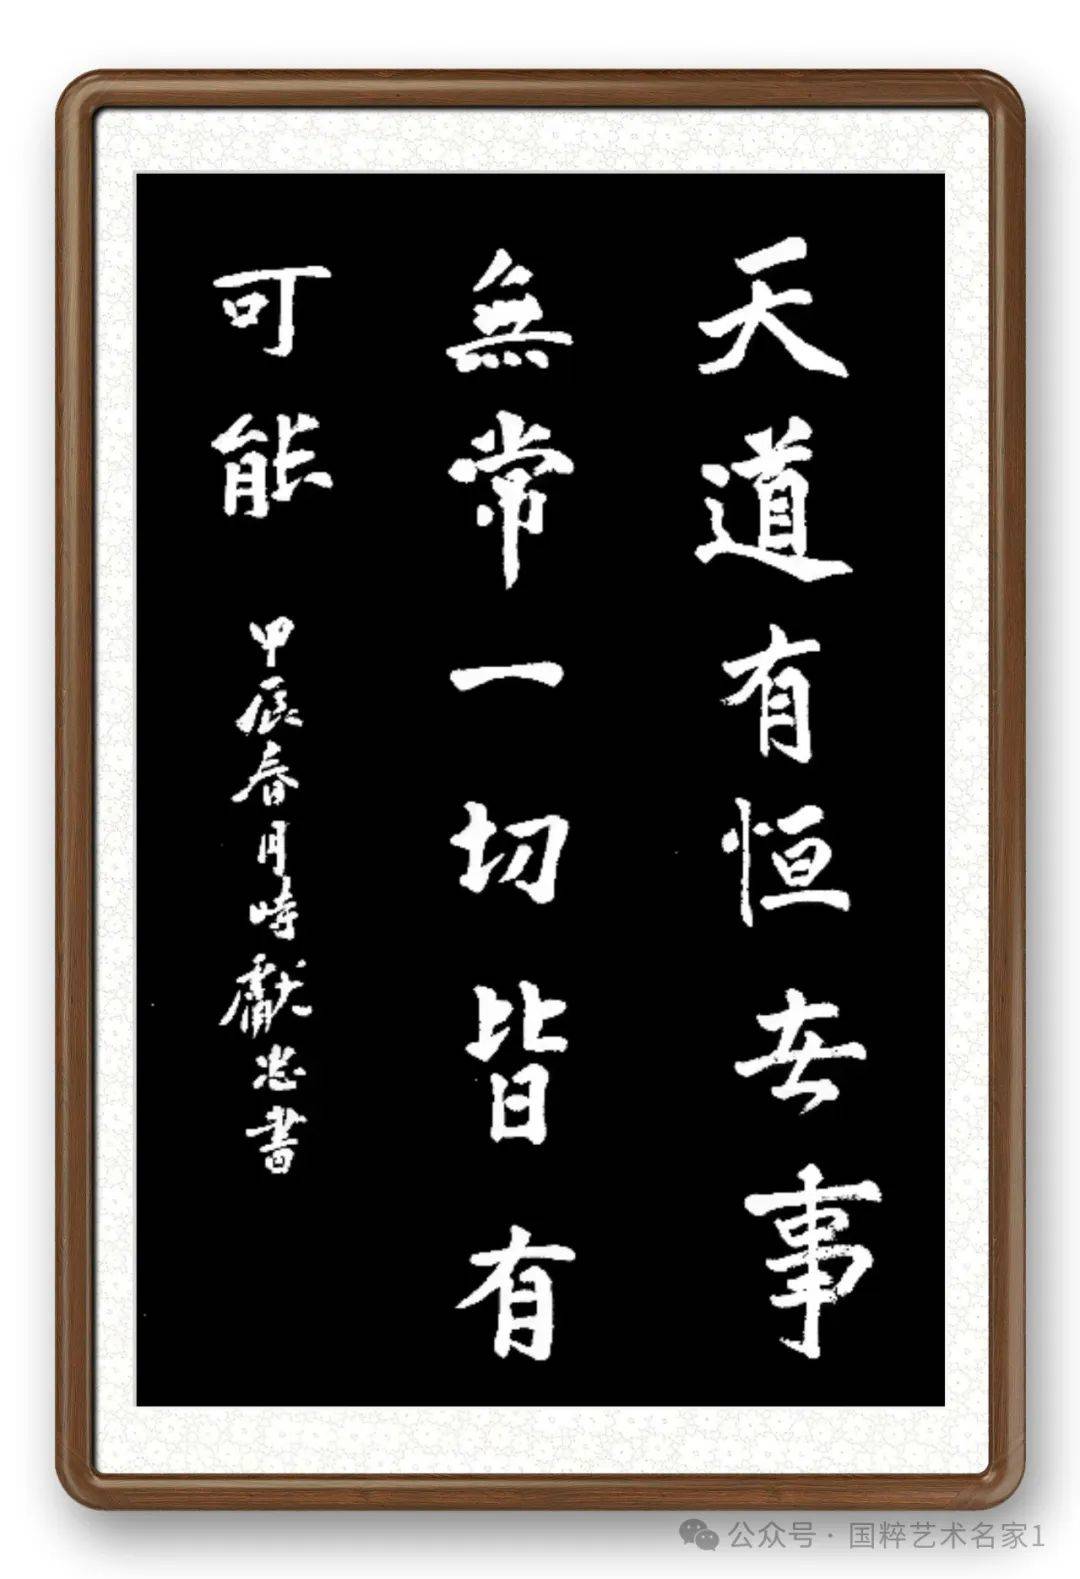 天道有恒世事
無常一切皆有
可能
甲辰春月時獻忠書
公众号·国粹艺术名家1